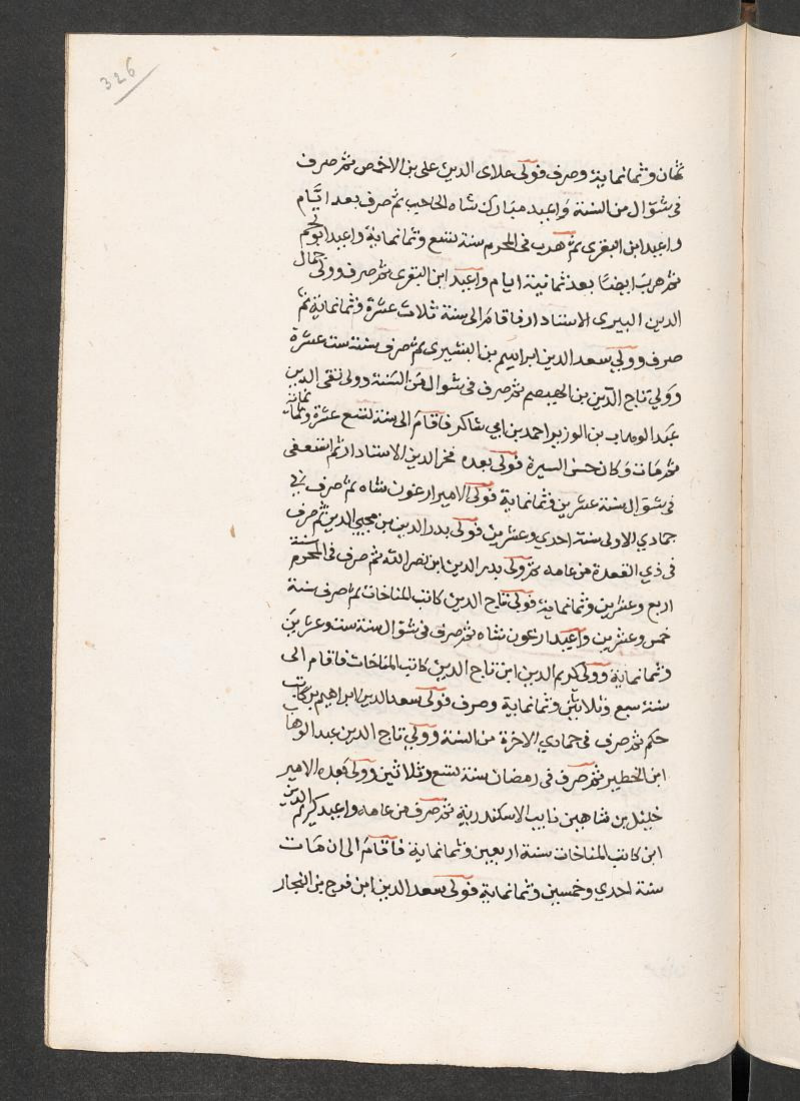 326
ثمان وثمانماية وصرف فولى علاى الدين على بن الاخمص ثم صرف
فى شوال من السنة واعيد مبارك شاه الحاجب ثم صرف بعد ايام
واعيد ابن البقرى ثم هرب فى المحرم سنة تسع وثمانماية واعيد ابو كم
ثم هرب ايضا بعد ثمانية ايام واعيد ابن البقرى ثم صرف وولى جمال
الدين البيرى الاستادار فاقام الى سنة ثلاث عشرة وثمانماية ثم
صرف وولي سعد الدين ابراهيم بن البشيرى ثم صرف سنة ست عشرة
وولي تاج الدين بن الهيصم ثم صرف فى شوال من السنة وولى تقى الدين
عبد الوهاب بن الوزير احمد بن ابي شاكر فاقام الى سنة تسع عشرة وثمانماية
ثم مات وكان حسن السيرة فولى بعده فخر الدين الاستادار ثم استعفى
فى شوال سنة عشرين وثمانماية فولى الامير ارغون شاه ثم صرف فى
جمادي الاولى سنة احدي وعشرين فولى بدر الدين بن محبي الدين ثم صرف
فى ذي القعدة من عامه ثم ولى بدر الدين ابن نصر الله ثم صرف فى المحرم سنة
اربع وعشرين وثمانماية فولى تاج الدين كاتب المناخات ثم صرف سنة
خمس وعشرين واعيد ارغون شاه ثم صرف فى شوال سنة ست وعشرين
وثمانماية وولى كريم الدين ابن تاج الدين كاتب المناخات فاقام الى
سنة سبع وثلاثين وثمانماية وصرف فولى سعد الدين ابراهيم بن كاتب
حكم ثم صرف فى جمادي الاخرة من السنة وولي تاج الدين عبد الوهاب
ابن الخطير ثم صرف فى رمضان سنة تسع وثلاثين وولى بعده الامير
خليل بن شاهين نايب الاسكندرية ثم صرف من عامه واعيد كريم الدين
ابن كاتب المناخات سنة اربعين وثمانماية فاقام الى ان مات
سنة احدي وخمسين وثمانماية فولى سعد الدين ابن فرج بن النجار